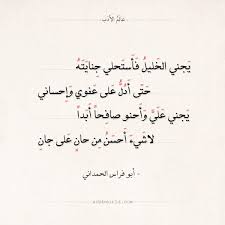 عالم الأدب
يَجني الخَليلُ فَأَستَحلي جِنايَتَهُ
حَتى أَدُلَّ على عَفوي وَإِحساني
يَجني عَليَّ وَأَحنو صافِحاً أَبَداً
لا شَيءَ أَحسَنُ مِن حانٍ عَلى جانِ
- أبو فراس الحمداني -